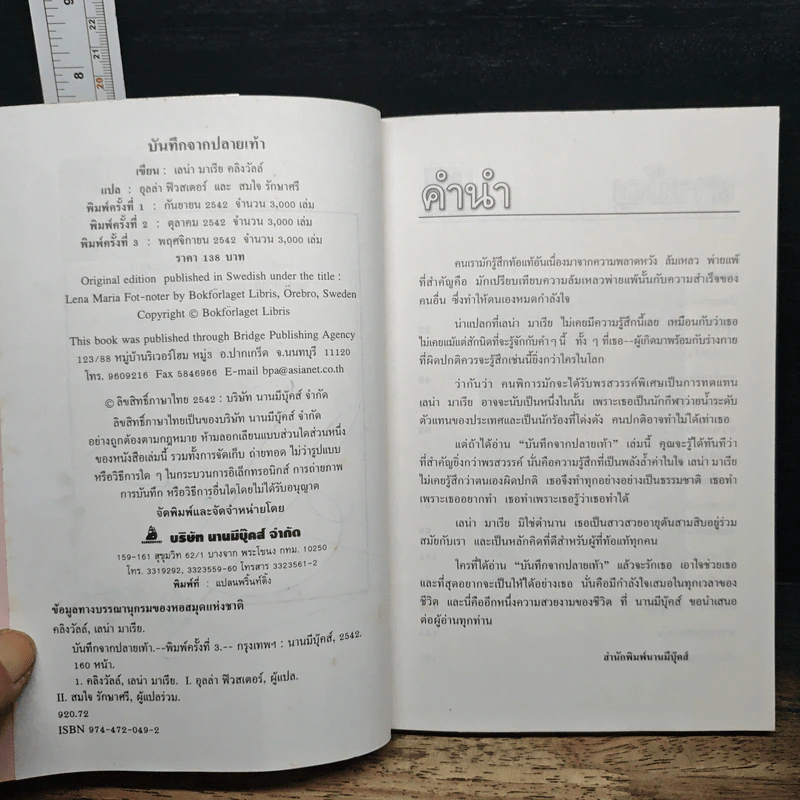 บันทึกจากปลายเท้า
เขียน : เลน่า มาเรีย คลิงวัลล์
แปล : อุลล่า ฟิวสเตอร์ และ สมใจ รักษาศรี
พิมพ์ครั้งที่ 1 : กันยายน 2542 จำนวน 3,000 เล่ม
พิมพ์ครั้งที่ 2 : ตุลาคม 2542 จำนวน 3,000 เล่ม
พิมพ์ครั้งที่ 3 : พฤศจิกายน 2542 จำนวน 3,000 เล่ม
ราคา 138 บาท
Original edition published in Swedish under the title :
Lena Maria Fot-noter by Bokförlaget Libris, Örebro, Sweden
Copyright © Bokförlaget Libris
This book was published through Bridge Publishing Agency
123/88 หมู่บ้านริเวอร์โฮม หมู่3 อ.ปากเกร็ด จ.นนทบุรี 11120
โทร. 9609216 Fax 5846966 E-mail bpa@asianet.co.th
© ลิขสิทธิ์ภาษาไทย 2542 : บริษัท นานมีบุ๊คส์ จำกัด
ลิขสิทธิ์ภาษาไทยเป็นของบริษัท นานมีบุ๊คส์ จำกัด
อย่างถูกต้องตามกฎหมาย ห้ามลอกเลียนแบบส่วนใดส่วนหนึ่ง
ของหนังสือเล่มนี้ รวมทั้งการจัดเก็บ ถ่ายทอด ไม่ว่ารูปแบบ
หรือวิธีการใด ๆ ในกระบวนการอิเล็กทรอนิกส์ การถ่ายภาพ
การบันทึก หรือวิธีการอื่นใดโดยไม่ได้รับอนุญาต
จัดพิมพ์และจัดจำหน่ายโดย
บริษัท นานมีบุ๊คส์ จำกัด
159-161 สุขุมวิท 62/1 บางจาก พระโขนง กทม. 10250
โทร. 3319292, 3323559-60 โทรสาร 3323561-2
พิมพ์ที่ : แปลนพริ้นท์ติ้ง
ข้อมูลทางบรรณานุกรมของหอสมุดแห่งชาติ
คลิงวัลล์, เลน่า มาเรีย.
บันทึกจากปลายเท้า.--พิมพ์ครั้งที่ 3.-- กรุงเทพฯ : นานมีบุ๊คส์, 2542.
160 หน้า.
1. คลิงวัลล์, เลน่า มาเรีย. I. อุลล่า ฟิวสเตอร์, ผู้แปล.
II. สมใจ รักษาศรี, ผู้แปลร่วม.
920.72
ISBN 974-472-049-2
คำนำ
คนเรามักรู้สึกท้อแท้อันเนื่องมาจากความพลาดหวัง ล้มเหลว พ่ายแพ้
ที่สำคัญคือ มักเปรียบเทียบความล้มเหลวพ่ายแพ้นั้นกับความสำเร็จของ
คนอื่น ซึ่งทำให้ตนเองหมดกำลังใจ
น่าแปลกที่เลน่า มาเรีย ไม่เคยมีความรู้สึกนี้เลย เหมือนกับว่าเธอ
ไม่เคยแม้แต่สักนิดที่จะรู้จักกับคำๆ นี้ ทั้ง ๆ ที่เธอ--ผู้เกิดมาพร้อมกับร่างกาย
ที่ผิดปกติควรจะรู้สึกเช่นนี้ยิ่งกว่าใครในโลก
ว่ากันว่า คนพิการมักจะได้รับพรสวรรค์พิเศษเป็นการทดแทน
เลน่า มาเรีย อาจจะนับเป็นหนึ่งในนั้น เพราะเธอเป็นนักกีฬาว่ายน้ำระดับ
ตัวแทนของประเทศและเป็นนักร้องที่โด่งดัง คนปกติอาจทำไม่ได้เท่าเธอ
แต่ถ้าได้อ่าน “บันทึกจากปลายเท้า” เล่มนี้ คุณจะรู้ได้ทันทีว่า
ที่สำคัญยิ่งกว่าพรสวรรค์ นั่นคือความรู้สึกที่เป็นพลังล้ำค่าในใจ เลน่า มาเรีย
ไม่เคยรู้สึกว่าตนเองผิดปกติ เธอจึงทำทุกอย่างอย่างเป็นธรรมชาติ เธอทำ
เพราะเธออยากทำ เธอทำเพราะเธอรู้ว่าเธอทำได้
เลน่า มาเรีย มิใช่ตำนาน เธอเป็นสาวสวยอายุต้นสามสิบอยู่ร่วม
สมัยกับเรา และเป็นหลักคิดที่ดีสำหรับผู้ที่ท้อแท้ทุกคน
ใครที่ได้อ่าน “บันทึกจากปลายเท้า” แล้วจะรักเธอ เอาใจช่วยเธอ
และที่สุดอยากจะเป็นให้ได้อย่างเธอ นั่นคือมีกำลังใจเสมอในทุกเวลาของ
ชีวิต และนี่คืออีกหนึ่งความสวยงามของชีวิต ที่ นานมีบุ๊คส์ ขอนำเสนอ
ต่อผู้อ่านทุกท่าน
สำนักพิมพ์นานมีบุ๊คส์